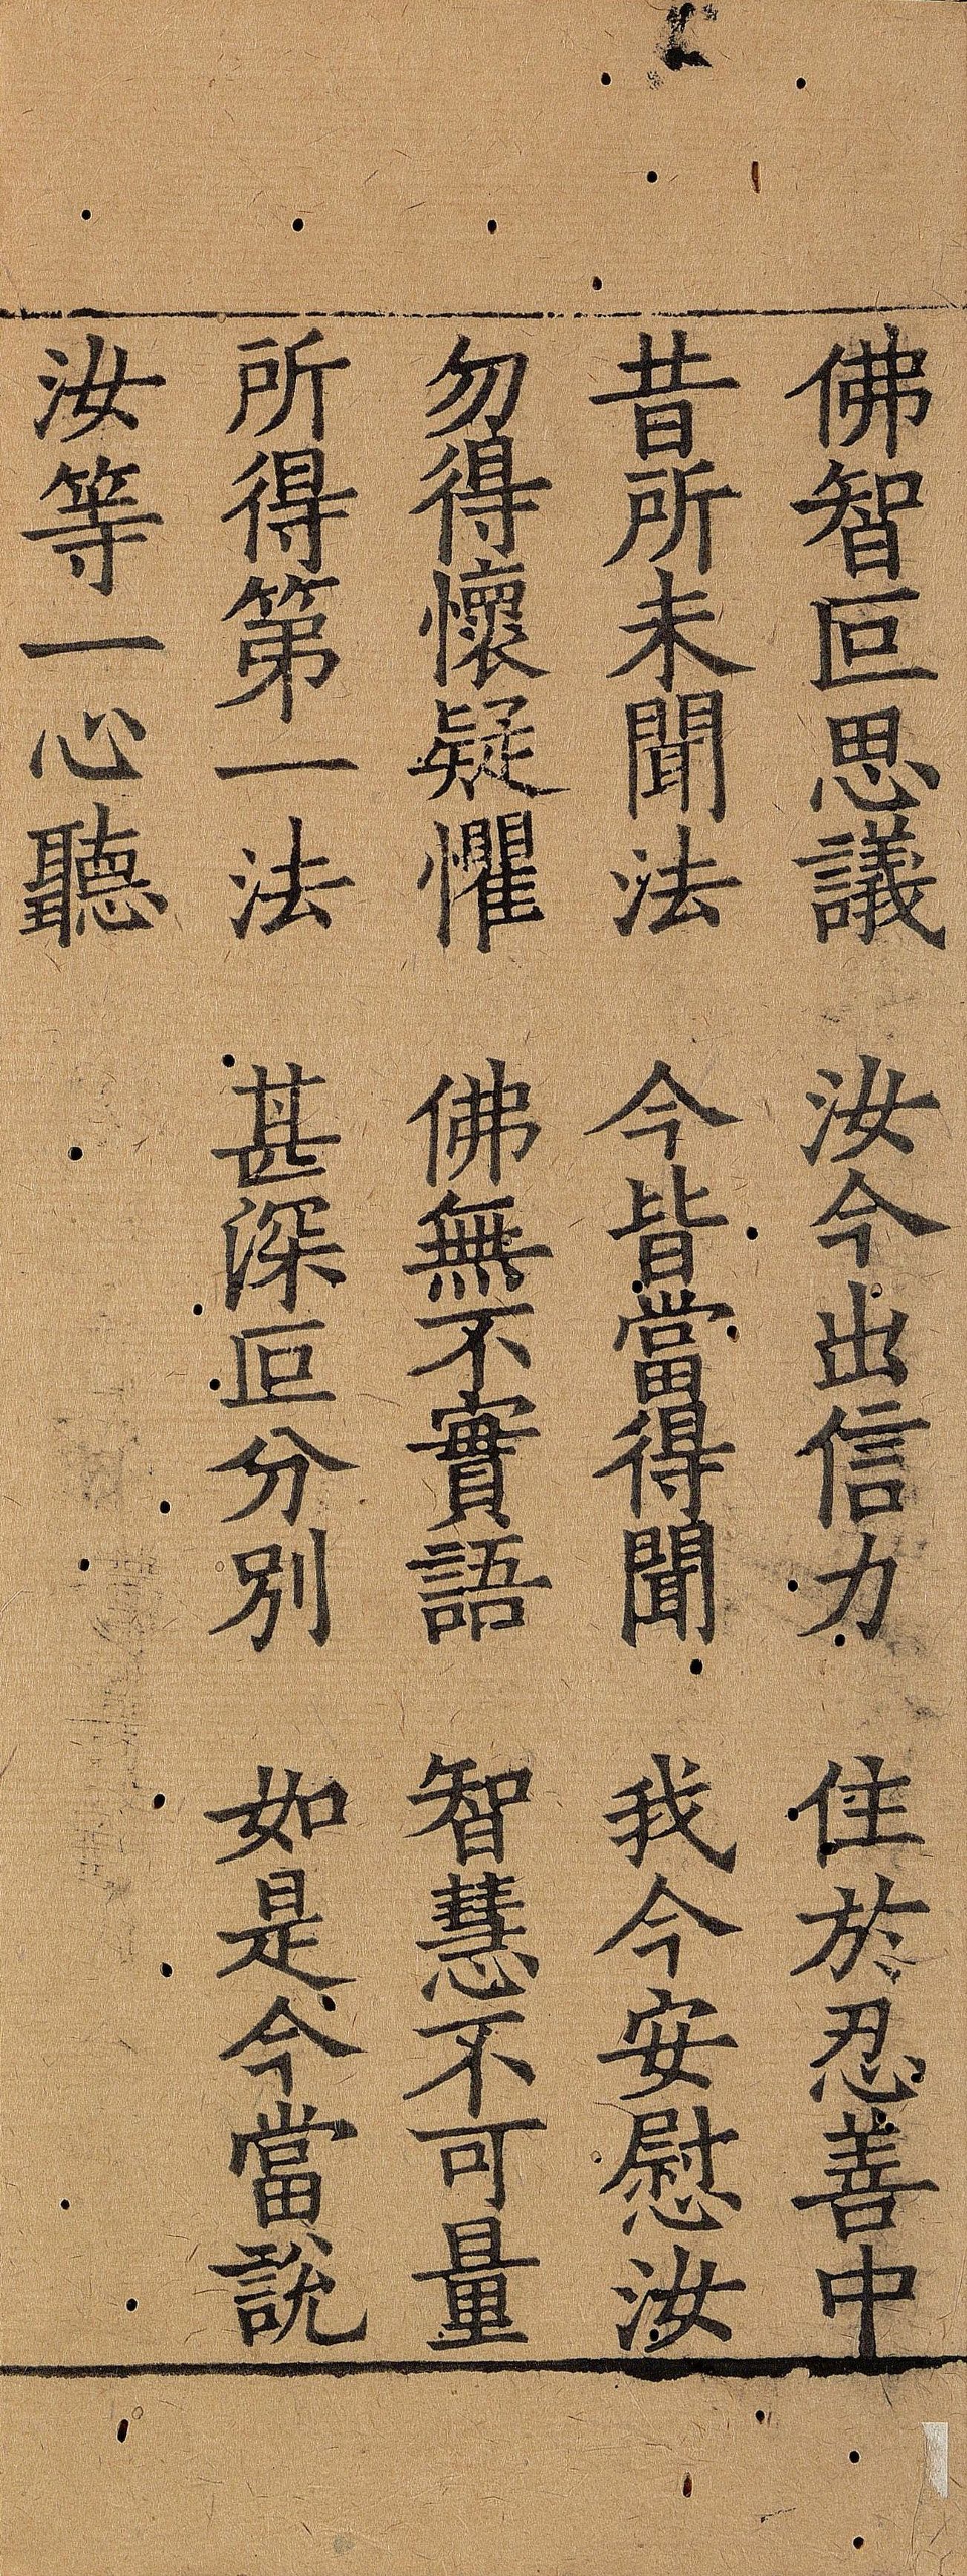 佛智叵思議　汝今出信力　住於忍善中
昔所未聞法　今皆當得聞　我今安慰汝
勿得懷疑懼　佛無不實語　智慧不可量
所得第一法　甚深叵分別　如是今當說
汝等一心聽